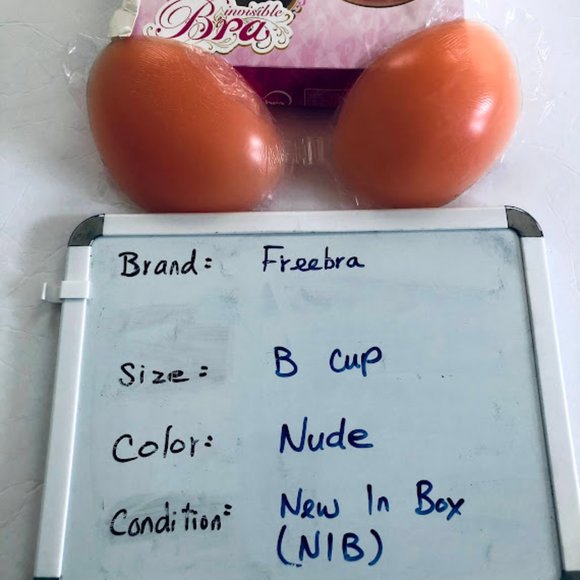 invisible
Bra
Brand: Freebra
Size: B cup
Color: Nude
Condition: New In Box
(NIB)